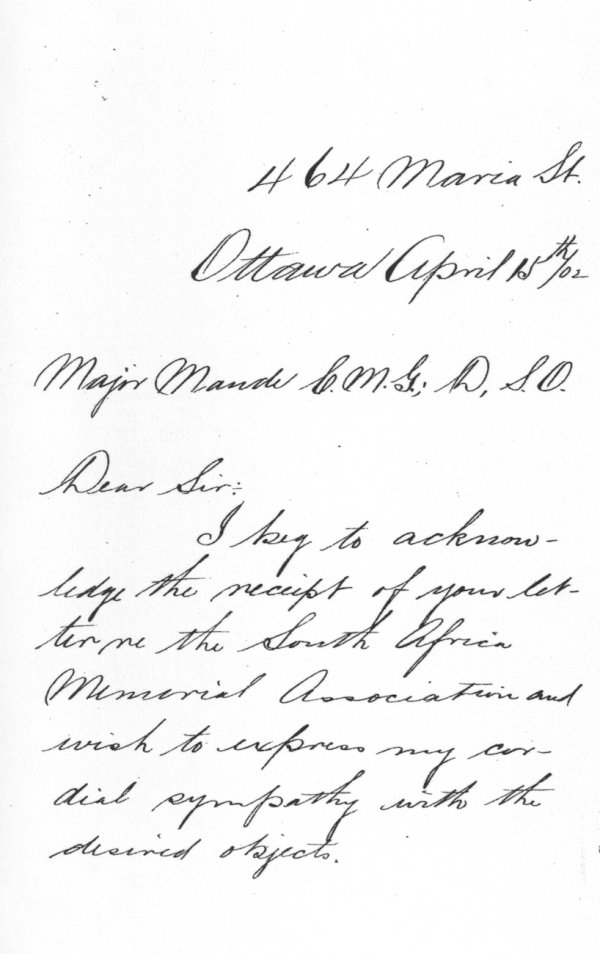 464 Maria St.
Ottawa April 15th/02
Major Maude C.M.G.; D.S.O.
Dear Sir:-
I beg to acknow-
ledge the receipt of your let-
ter re the South Africa
Memorial Association and
wish to express my cor-
dial sympathy with the
desired objects.